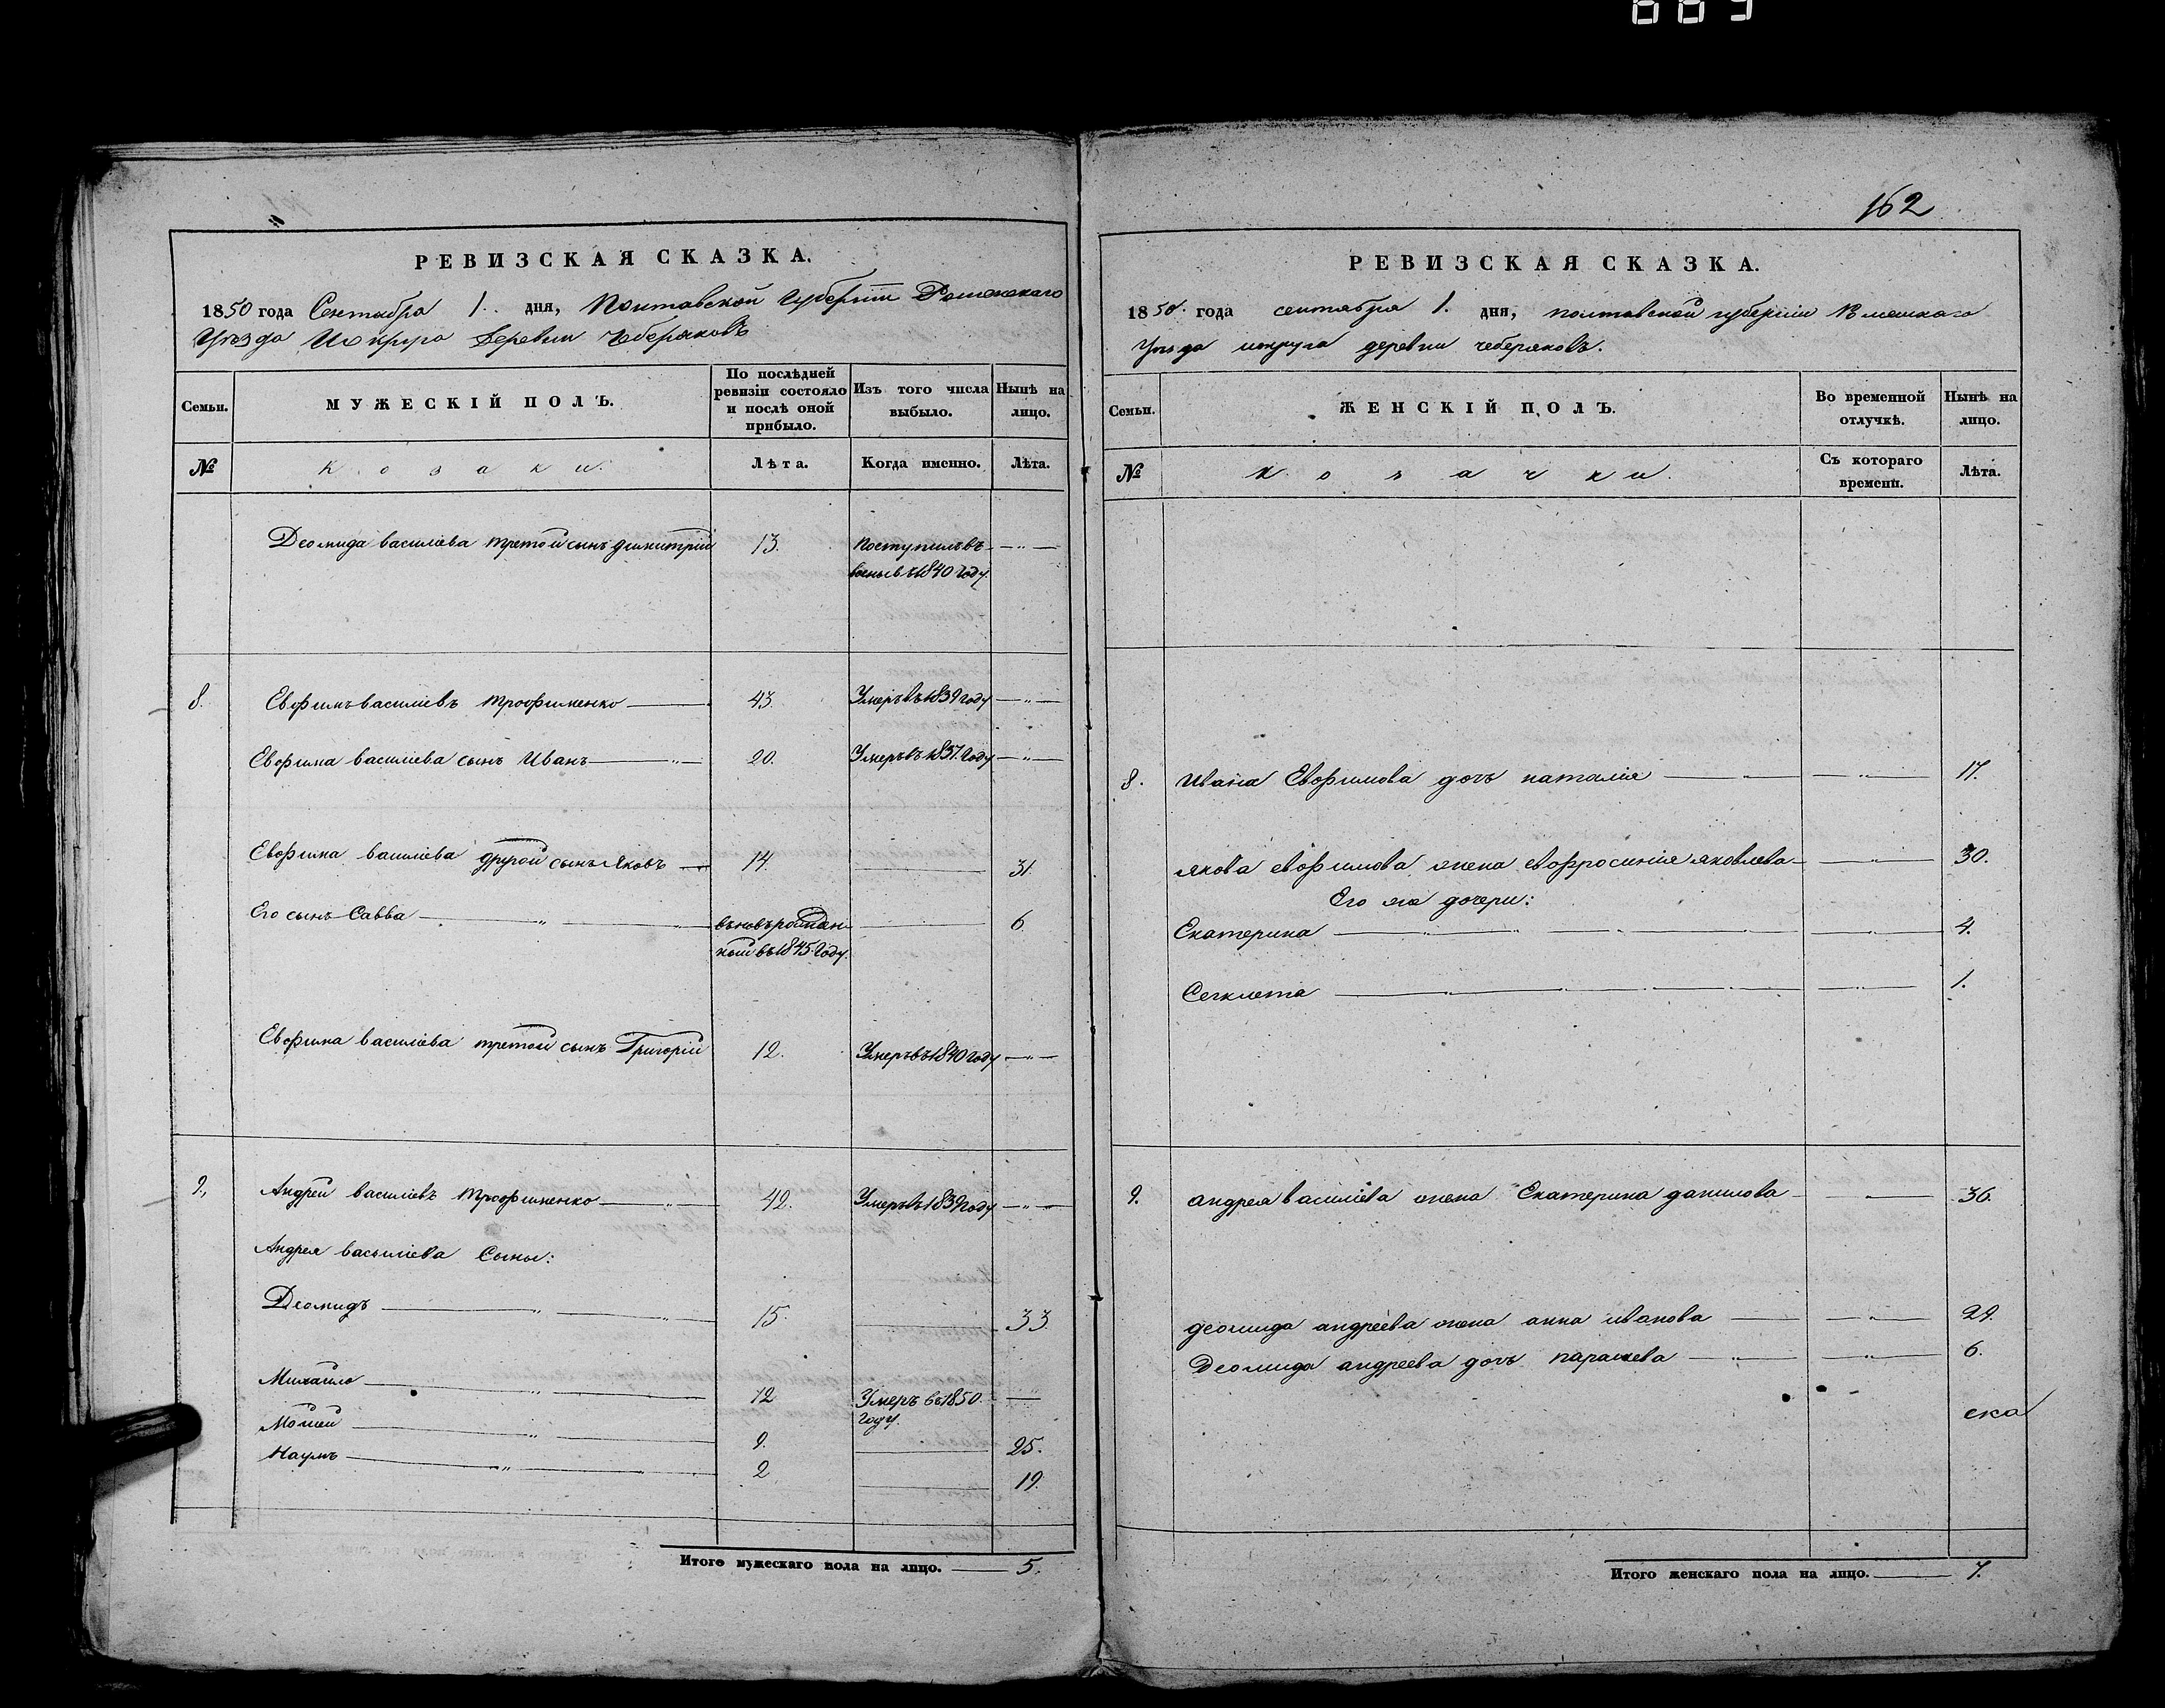 669
РЕВИЗСКАЯ СКАЗКА.
1850 года Сентября 1. дня, Полтавской Губернiи Роменскаго
Уѣзда И округа Деревни Чеберяковъ
Семьи.
МУЖЕСКІЙ ПОЛЪ.
По послѣдней ревизіи состояло и послѣ оной прибыло.
Изъ того числа выбыло.
Нынѣ на лицо.
№
Козаки.
Лѣта.
Когда именно.
Лѣта.
Деомида василіева третой сынъ димитрій 13. Поступилъ въ — " —
въ 1840 Году.
8. Евфимъ василіевъ трофименко — 43. Умеръ въ 1839 году — " —
Евфима василіева сынъ Иванъ — " — 20. Умеръ въ 1837. Году — " —
Евфима василіева другой сынъ Яковъ — 14. — 31.
Его сынъ Савва — " — " — вновь рожден- — 6
ный въ 1845. Году.
Евфима василіева третой сынъ Григорій 12. Умеръ въ 1840 Году — " —
9., Андрей василіевъ трофименко — " — 42. Умеръ въ 1839 году — " —
Андрея василіева Сыны:
Деомидъ — " — " — 15. — 33.
Михайло — " — 12 Умеръ въ 1850. —
году.
Мойсей — " — 9. — 25.
Наумъ — " — 2 — 19.
Итого мужескаго пола на лицо. — 5.
162
РЕВИЗСКАЯ СКАЗКА.
1850. года сентября 1. дня, полтавской губерніи Роменскаго
Уѣзда и округа деревни чеберяковъ.
Семьи.
ЖЕНСКІЙ ПОЛЪ.
Во временной отлучкѣ.
Нынѣ на лицо.
№
Козачки.
Съ котораго времени.
Лѣта.
8. Ивана Евфимова дочь наталія — " — — " — 17.
якова евфимова жена евфросинія яковлева — — " — 30.
Его же дочери:
Екатерина — " — " — " — — " — 4.
Секлета — " — " — " — — " — 1.
9. андрея василіева жена Екатерина данилова — — " — 36.
деомида андреева жена анна иванова — — " — 29.
Деомида андреева дочь параскева — " — — " — 6.
Итого женскаго пола на лицо. — 7.